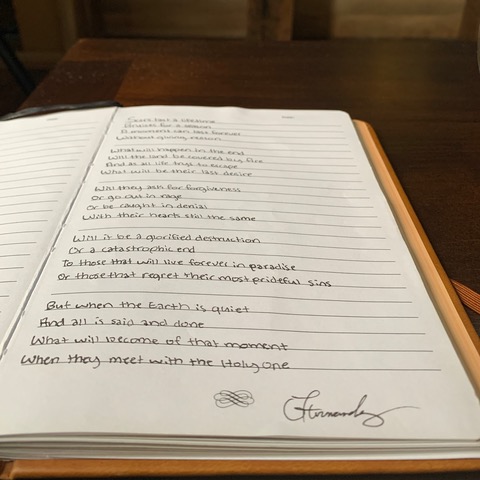 Scars last a lifetime
for a season
A moment can last forever
Without giving reason
What will happen in the end
Will the land be covered by fire
And as all life trys to escape
What will be their last desire
Will they ask for forgiveness
Or go out in rage
Or be caught in denial
With their hearts still the same
Will it be a glorified destruction
Or a catastrophic end
To those that will live forever in paradise
Or those that regret their most prideful sins
But when the Earth is quiet
And all is said and done
What will become of that moment
When they meet with the Holy One
Hernandez